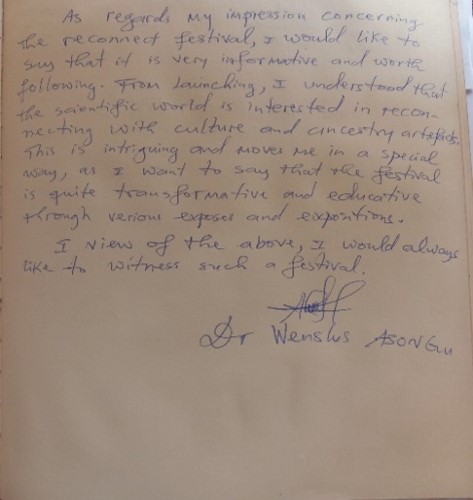 As regards my impression concerning
the reconnect festival, I would like to
say that it is very informative and worth
following. From launching, I understood that
the scientific world is interested in recon-
necting with culture and ancestry artefacts.
This is intriguing and moves me in a special
way, as I want to say that the festival
is quite transformative and educative
through verious exposes and expositions.
I view of the above, I would always
like to witness such a festival.
Dr Wenslus ASONGU